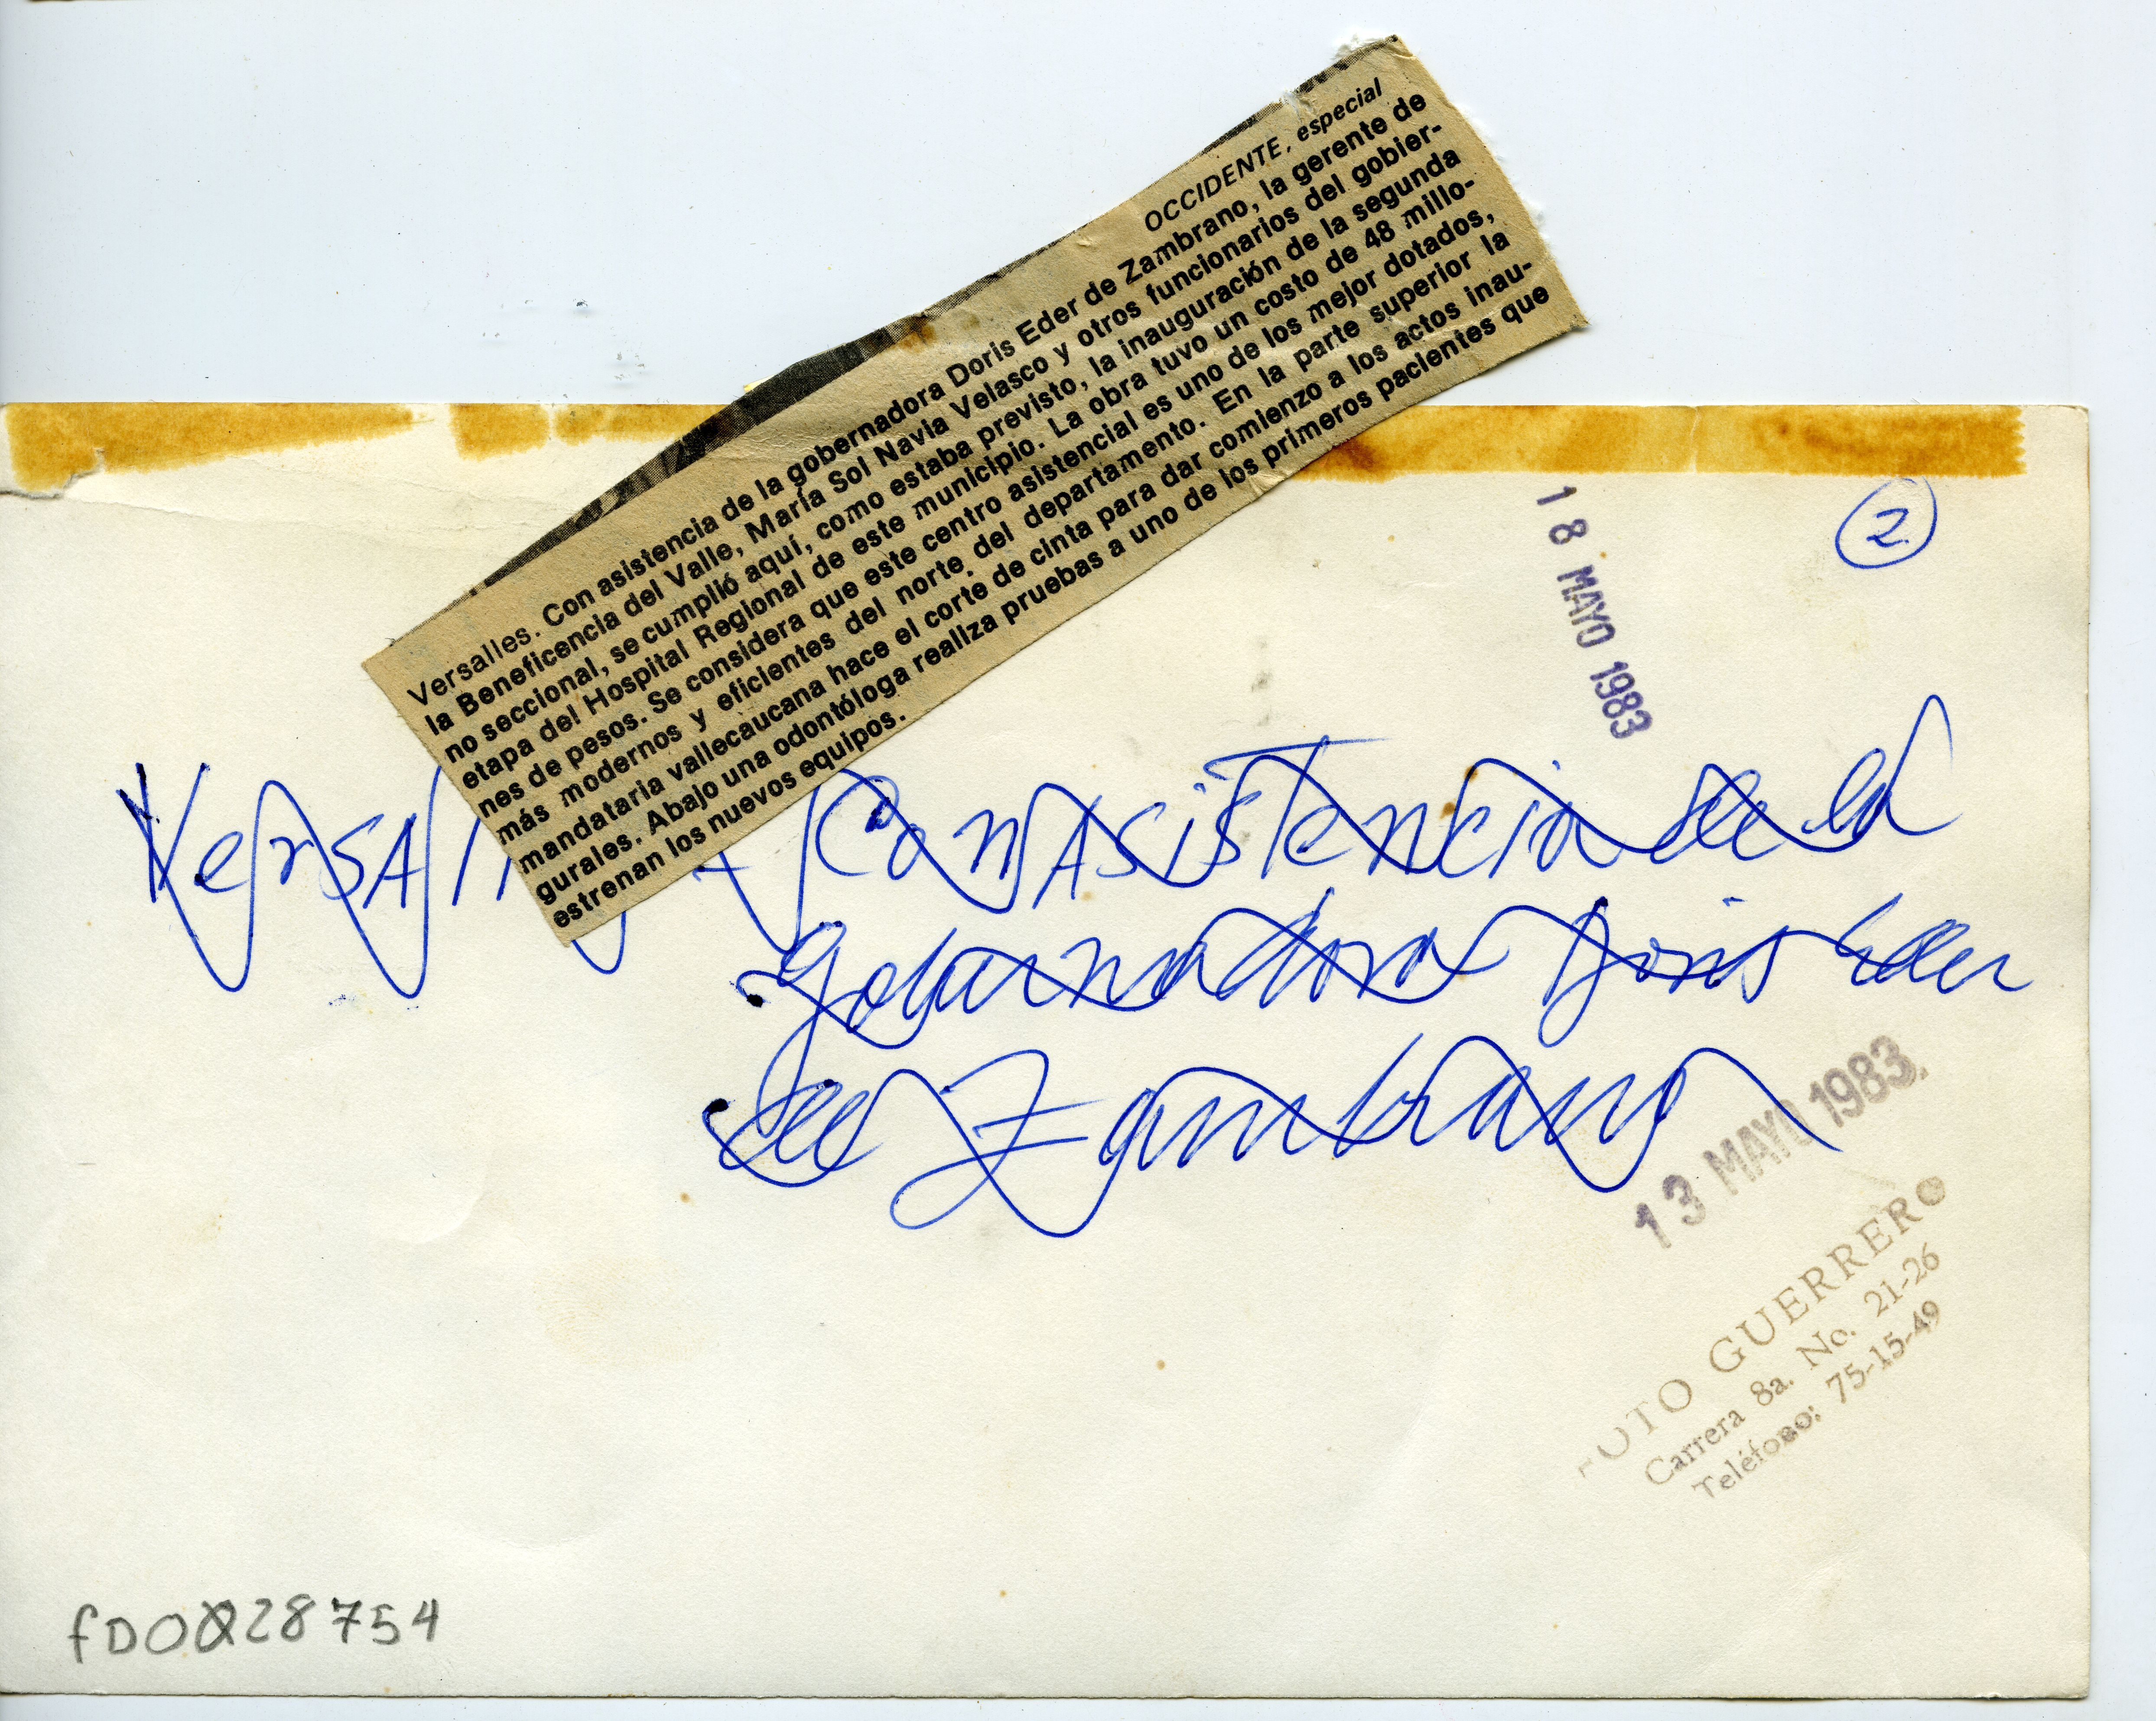 OCCIDENTE, especial
Versalles. Con asistencia de la gobernadora Doris Eder de Zambrano, la gerente de
la Beneficencia del Valle, María Sol Navia Velasco y otros funcionarios del gobier-
no seccional, se cumplió aquí, como estaba previsto, la inauguración de la segunda
etapa del Hospital Regional de este municipio. La obra tuvo un costo de 48 millo-
nes de pesos. Se considera que este centro asistencial es uno de los mejor dotados,
más modernos y eficientes del norte del departamento. En la parte superior la
mandataria vallecaucana hace el corte de cinta para dar comienzo a los actos inau-
gurales. Abajo una odontóloga realiza pruebas a uno de los primeros pacientes que
estrenan los nuevos equipos.
2
18 MAYO 1983
Con Asistencia de la
gobernadora Doris Eder
de Zambrano
13 MAYO 1983
FOTO GUERRERO
Carrera 8a. No. 21-26
Teléfono: 75-15-49
fD0028754